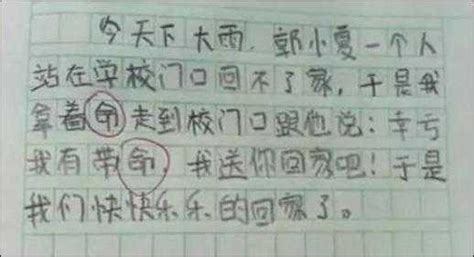 今天下大雨，郭小夏一个人
站在学校门口回不了家，于是我
拿着命走到校门口跟他说：幸亏
我有带命，我送你回家吧！于是
我们快快乐乐的回家了。